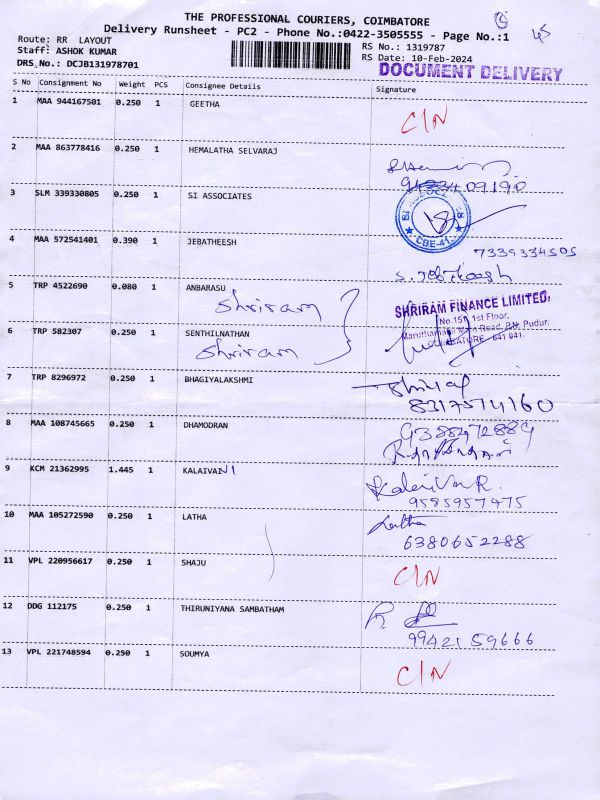 THE PROFESSIONAL COURIERS, COIMBATORE
Delivery Runsheet - PC2 - Phone No.:0422-3505555 - Page No.:1
45
Route: RR LAYOUT
RS No.: 1319787
Staff: ASHOK KUMAR
RS Date: 10-Feb-2024
DRS No.: DCJB131978701
DOCUMENT DELIVERY
S No Consignment No Weight PCS Consignee Details Signature
1 MAA 944167501 0.250 1 GEETHA
C/N
2 MAA 863778416 0.250 1 HEMALATHA SELVARAJ
3 SLM 339330805 0.250 1 SI ASSOCIATES
CBE-41
4 MAA 572541401 0.390 1 JEBATHEESH
7339334505
5 TRP 4522690 0.080 1 ANBARASU
Shriram
SHRIRAM FINANCE LIMITED,
No.151, 1st Floor,
Maruthamalai Main Road, P.N. Pudur,
COIMBATORE - 641 041.
6 TRP 582307 0.250 1 SENTHILNATHAN
Shriram
7 TRP 8296972 0.250 1 BHAGIYALAKSHMI
8317574160
8 MAA 108745665 0.250 1 DHAMODRAN
9388972889
9 KCM 21362995 1.445 1 KALAIVANI
Kalaivan R.
9585957475
10 MAA 105272590 0.250 1 LATHA
Latha
6380652288
11 VPL 220956617 0.250 1 SHAJU
C/N
12 DDG 112175 0.250 1 THIRUNIYANA SAMBATHAM
9942159666
13 VPL 221748594 0.250 1 SOUMYA
C/N